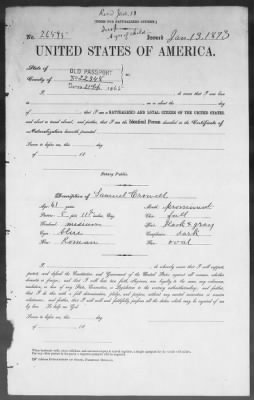 Recd Jan 13
[FORM FOR NATURALIZED CITIZEN.]
No. 26595
Issued Jan 13, 1873
UNITED STATES OF AMERICA.
State of
County of
OLD PASSPORT
No 22348
1865
I, do swear that I was born
in on or about the day
of ; that I am a NATURALIZED AND LOYAL CITIZEN OF THE UNITED STATES,
and about to travel abroad; and further, that I am the Identical Person described in the Certificate of
Naturalization herewith presented.
Sworn to before me, this day
of 18
Notary Public.
Description of Samuel Cromwell
Age: 61 years
Stature: 5 feet inches, Eng.
Forehead: medium
Eyes: Olive
Nose: Roman
Mouth: prominent
Chin: full
Hair: black & gray
Complexion: dark
Face: oval
I, do solemnly swear that I will support,
protect, and defend the Constitution and Government of the United States against all enemies, whether
domestic or foreign; and that I will bear true faith, allegiance, and loyalty to the same, any ordinance,
resolution, or law of any State, Convention, or Legislature to the contrary notwithstanding; and further,
that I do this with a full determination, pledge, and purpose, without any mental reservation or evasion
whatsoever; and further, that I will well and faithfully perform all the duties which may be required of me
by law. So help me God.
Sworn to before me, this day
of 18